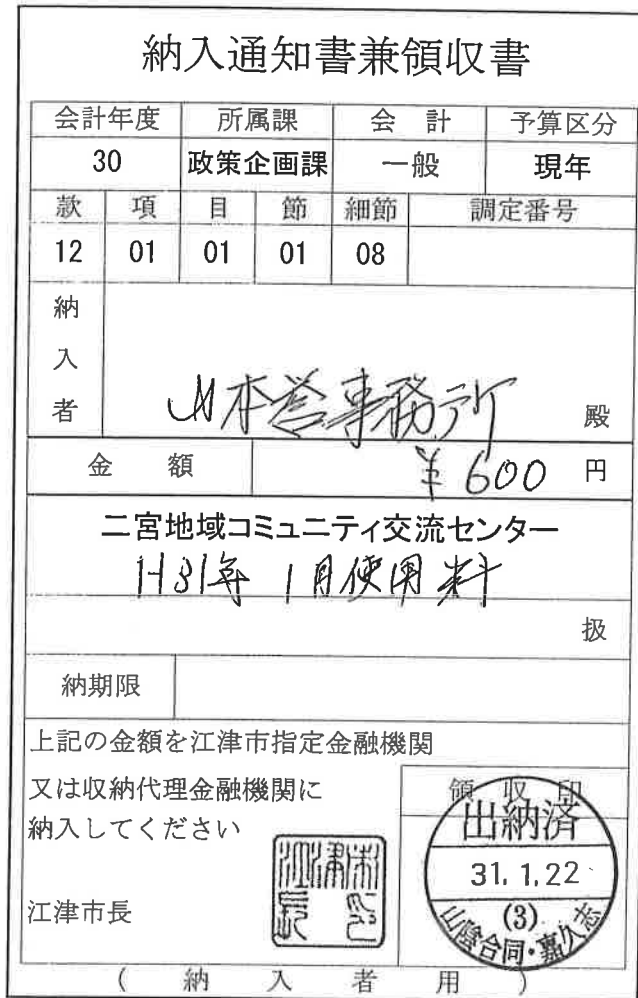 納入通知書兼領収書
会計年度 所属課 会計 予算区分
30 政策企画課 一般 現年
款 項 目 節 細節 調定番号
12 01 01 01 08
納入者
本営事務所 殿
金額 ¥600 円
二宮地域コミュニティ交流センター
H31年 1月使用料
扱
納期限
上記の金額を江津市指定金融機関
又は収納代理金融機関に
納入してください
領収印
出納済
31.1.22
(3)
山陰合同・嘉久志
江津市長
江津市長之印
(納入者用)